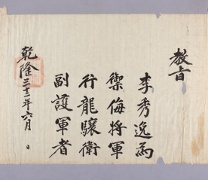 教旨
李秀逸爲
禦侮將軍
行龍驤衛
副護軍者
乾隆三十三年六月 日